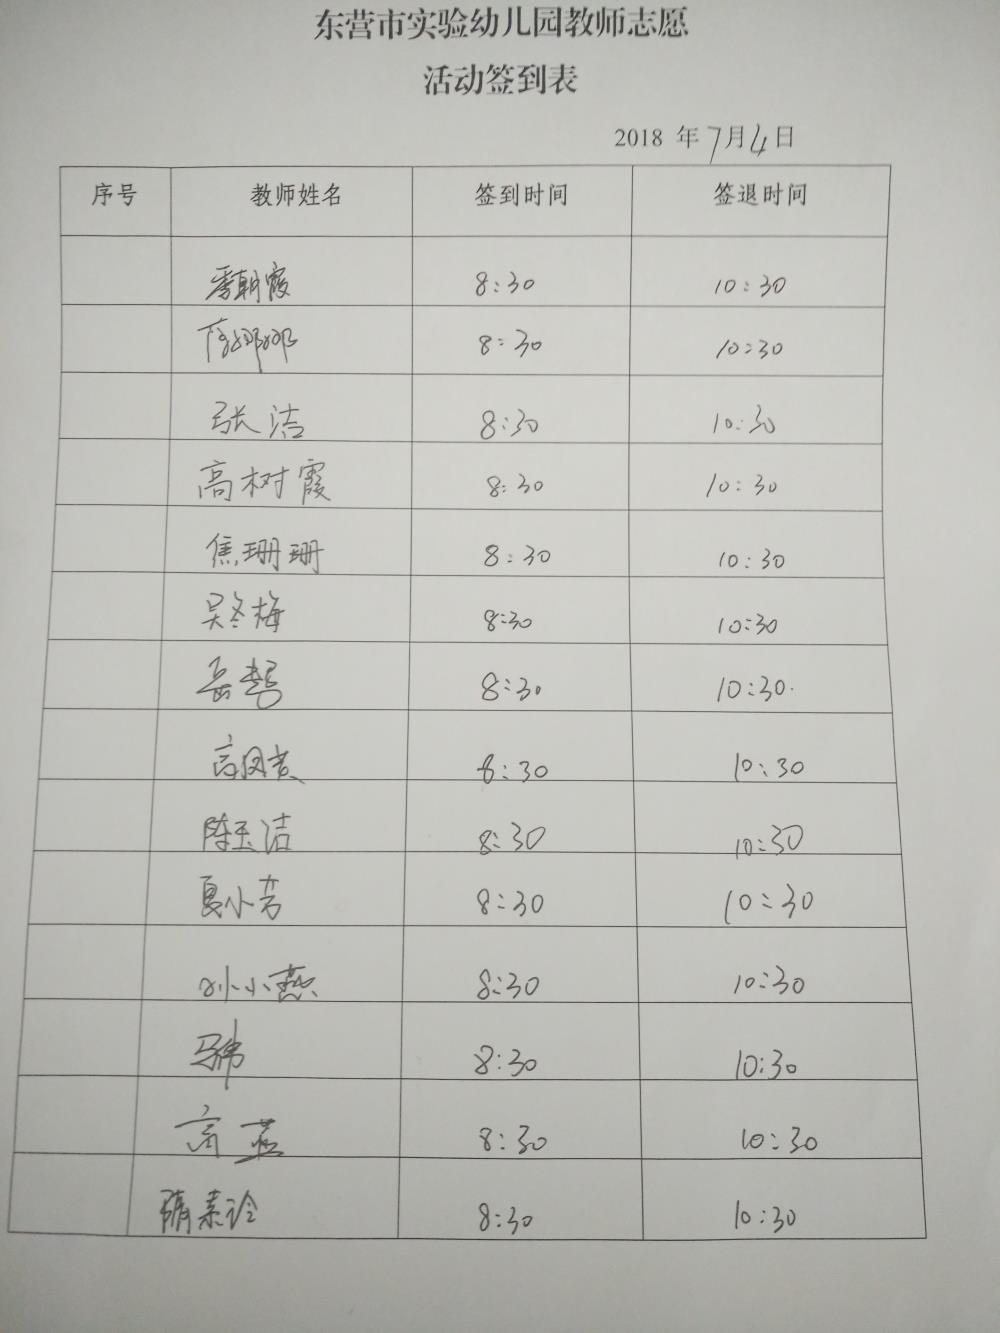 东营市实验幼儿园教师志愿
活动签到表
2018 年 7月4日
序号 教师姓名 签到时间 签退时间
季朝霞 8:30 10:30
薛娜娜 8:30 10:30
张洁 8:30 10:30
高树霞 8:30 10:30
焦珊珊 8:30 10:30
吴冬梅 8:30 10:30
岳 8:30 10:30
高凤 8:30 10:30
陈玉洁 8:30 10:30
夏小芳 8:30 10:30
孙小燕 8:30 10:30
马伟 8:30 10:30
高蓝 8:30 10:30
隋素玲 8:30 10:30